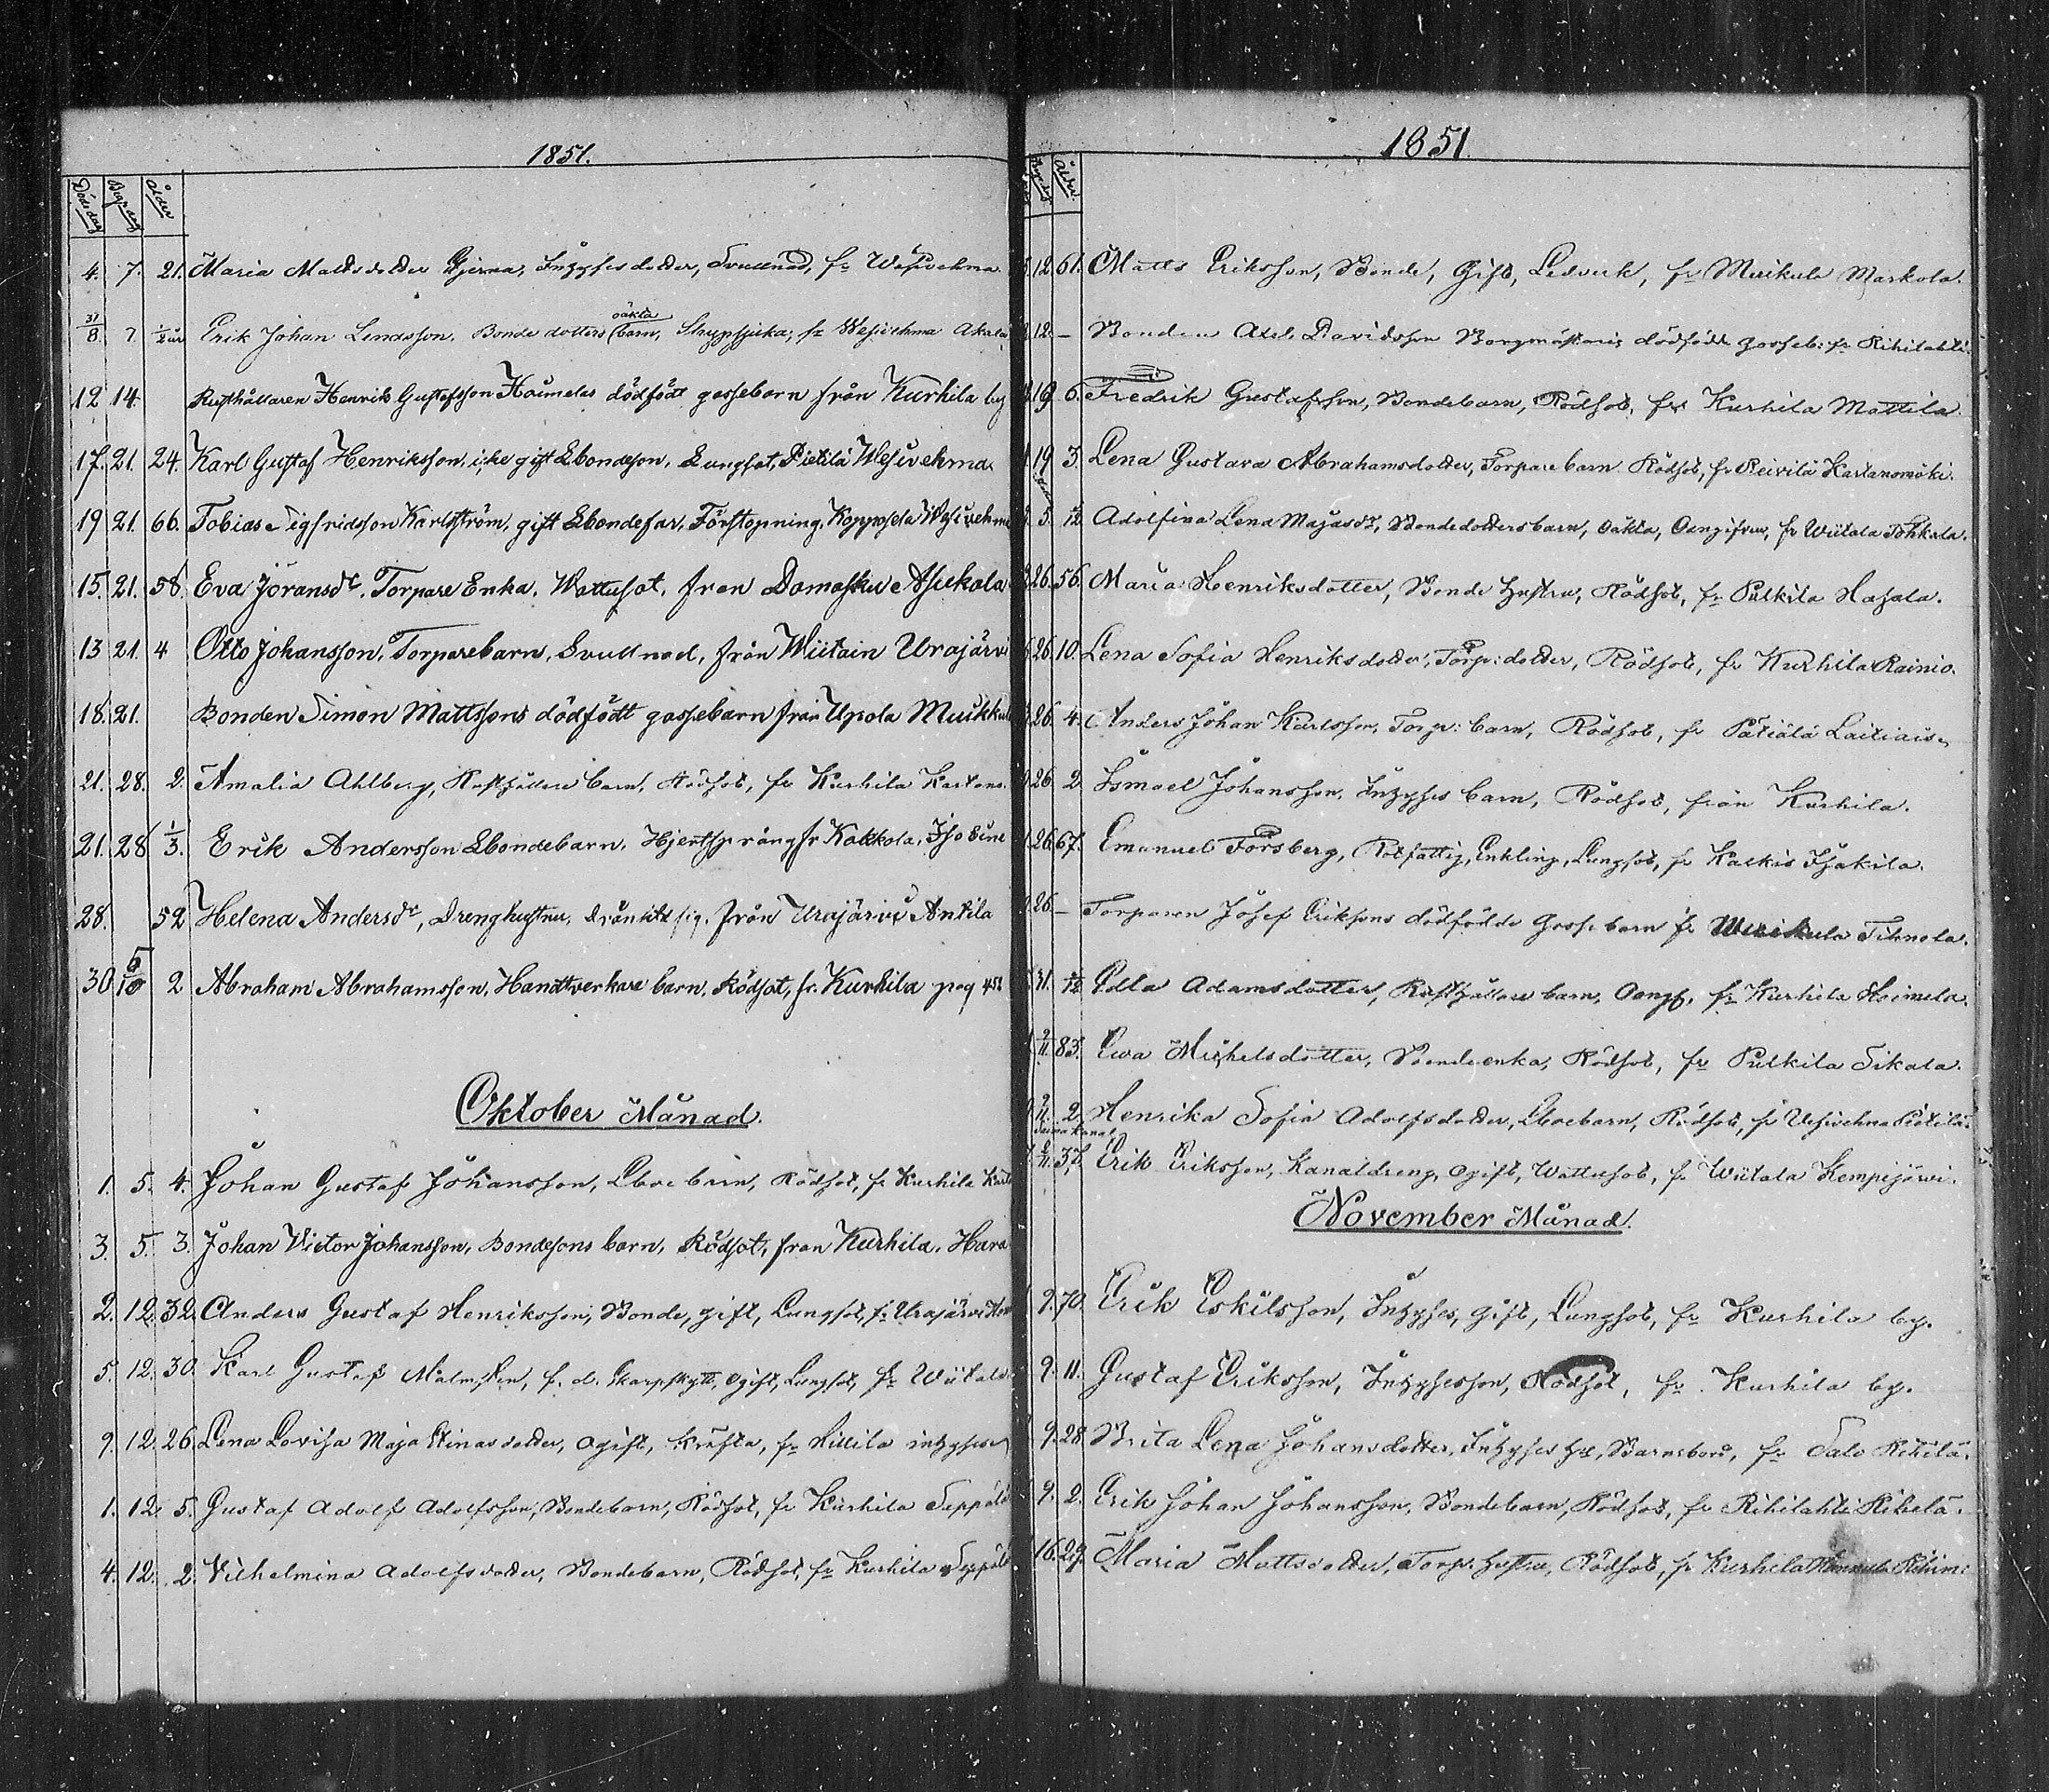 1851.
Dödsdag Begr.dag Ålder
4. 7. 21. Maria Mattsdotter Inhyses dotter, Svullnad, fr Wesivehma
31/8. 7. 1/2 år Erik Johan Lenasson, Bonde dotters oäkta barn, Strypsjuka, fr Wesivehma Akala
12 14. Rusthållaren Henrik Gustafsson Hoimelas dödfödt gossebarn från Kurhila by
17. 21. 24. Karl Gustaf Henriksson, icke gift Bondeson, Lungsot, Pietilä Wesivehma
19 21. 66. Tobias Sigfridsson Karlström, gift Bondefar, Förstopning, Koppsela Wesivehma
15. 21. 58. Eva Jöransdr, Torpare Enka, Wattusot, från Damasku Asikala
13 21. 4 Otto Johansson, Torparebarn, Svullnad, från Wiitain Urajärvi
18. 21. Bonden Simon Mattssons dödfödt gossebarn från Upola Muikkula
21. 28. 2. Amalia Ahlberg, Rusthållare barn, Rödsot, fr Kurhila Kartano
21. 28 1/3. Erik Andersson Bondebarn, Hjertsprång fr Kalkkola, Iso Eine
28. 52 Helena Andersdr, Drenghustru, dränkte sig, från Urajärvi Antila
30 5/10 2 Abraham Abrahamsson, Handtverkare barn, Rödsot, fr. Kurhila pag 451
Oktober Månad.
1. 5. 4. Johan Gustaf Johansson, Rödsot, fr Kurhila
3. 5. 3. Johan Victor Johansson, Bondesons barn, Rödsot, från Kurhila, Hara
2. 12. 32. Anders Gustaf Henriksson, Bonde, gift, Lungsot, fr Urajärvi
5. 12. 30. Karl Gustaf Malmsten, f. d. Skarpskytt, Ogift, Lungsot, fr Wiitala
9. 12. 26. Lena Lovisa Maja Stinasdotter, ogift, Kräfta, fr Hillilä inhyses
1. 12. 5. Gustaf Adolf Adolfsson, Bondebarn, Rödsot, fr Kurhila Seppälä
4. 12. 2. Vilhelmina Adolfsdotter, Bondebarn, Rödsot, fr Kurhila Seppälä
1851.
Begr.dag Ålder.
12 61. Matts Eriksson, Bonde, Gift, Ledverk, fr Muikula Markola.
12. – Bonden Axel Davidsson Borgmästaris dödfödt gosseb: fr Rihilahti.
19 6. Fredrik Gustafsson, Bondebarn, Rödsot, fr Kurhila Mattila.
19 3. Lena Gustava Abrahamsdotter, Torpare barn Rödsot, fr Reivilä Kartanomäki.
5. Adolfina Lena Majasdr, Bondedottersbarn, Oäkta, Oangifven, fr Wiitala Tohkala.
26. 56. Maria Henriksdotter, Bonde hustru, Rödsot, fr Pulkila Hasala.
26 10. Lena Sofia Henriksdotter, Torp: dotter, Rödsot, fr Kurhila Rainio.
26 4. Anders Johan Karlsson, Torp: barn, Rödsot, fr Pätiälä Laitiais.
26. 2. Ismael Johansson, Inhyses barn, Rödsot, från Kurhila.
26. 67. Emanuel Forsberg, Rotfattig, Enkling, Lungsot, fr Kalkis Isakila.
26 – Torparen Josef Eriksons dödfödde Gosse barn fr Muikula Tihnola.
31. Edla Adamsdotter, Rusthållare barn, Oangf, fr Kurhila Hoimela.
2/11. 83. Ewa Michelsdotter, Bondeenka, Rödsot, fr Pulkila Sikala.
2/11. 2. Henrika Sofia Adolfsdotter, Rödsot, fr Vesivehma Pietilä.
Saima Kanal
2/11. 37. Erik Eriksson, Kanaldreng, Ogift, Wattusot, fr Wiitala Kempijärvi.
November Månad.
9. 70. Erik Eskilsson, Inhyses, gift, Lungsot, fr Kurhila by.
9. 11. Gustaf Eriksson, Inhysesson, Rödsot, fr. Kurhila by.
9. 28. Brita Lena Johansdotter, Inhyses hu, Barnsbörd, fr Salo Rikilä.
9. 2. Erik Johan Johansson, Bondebarn, Rödsot, fr Rihilahti Rihelä.
16. 29. Maria Mattsdotter, Torp. hustru, Rödsot, fr Kurhila